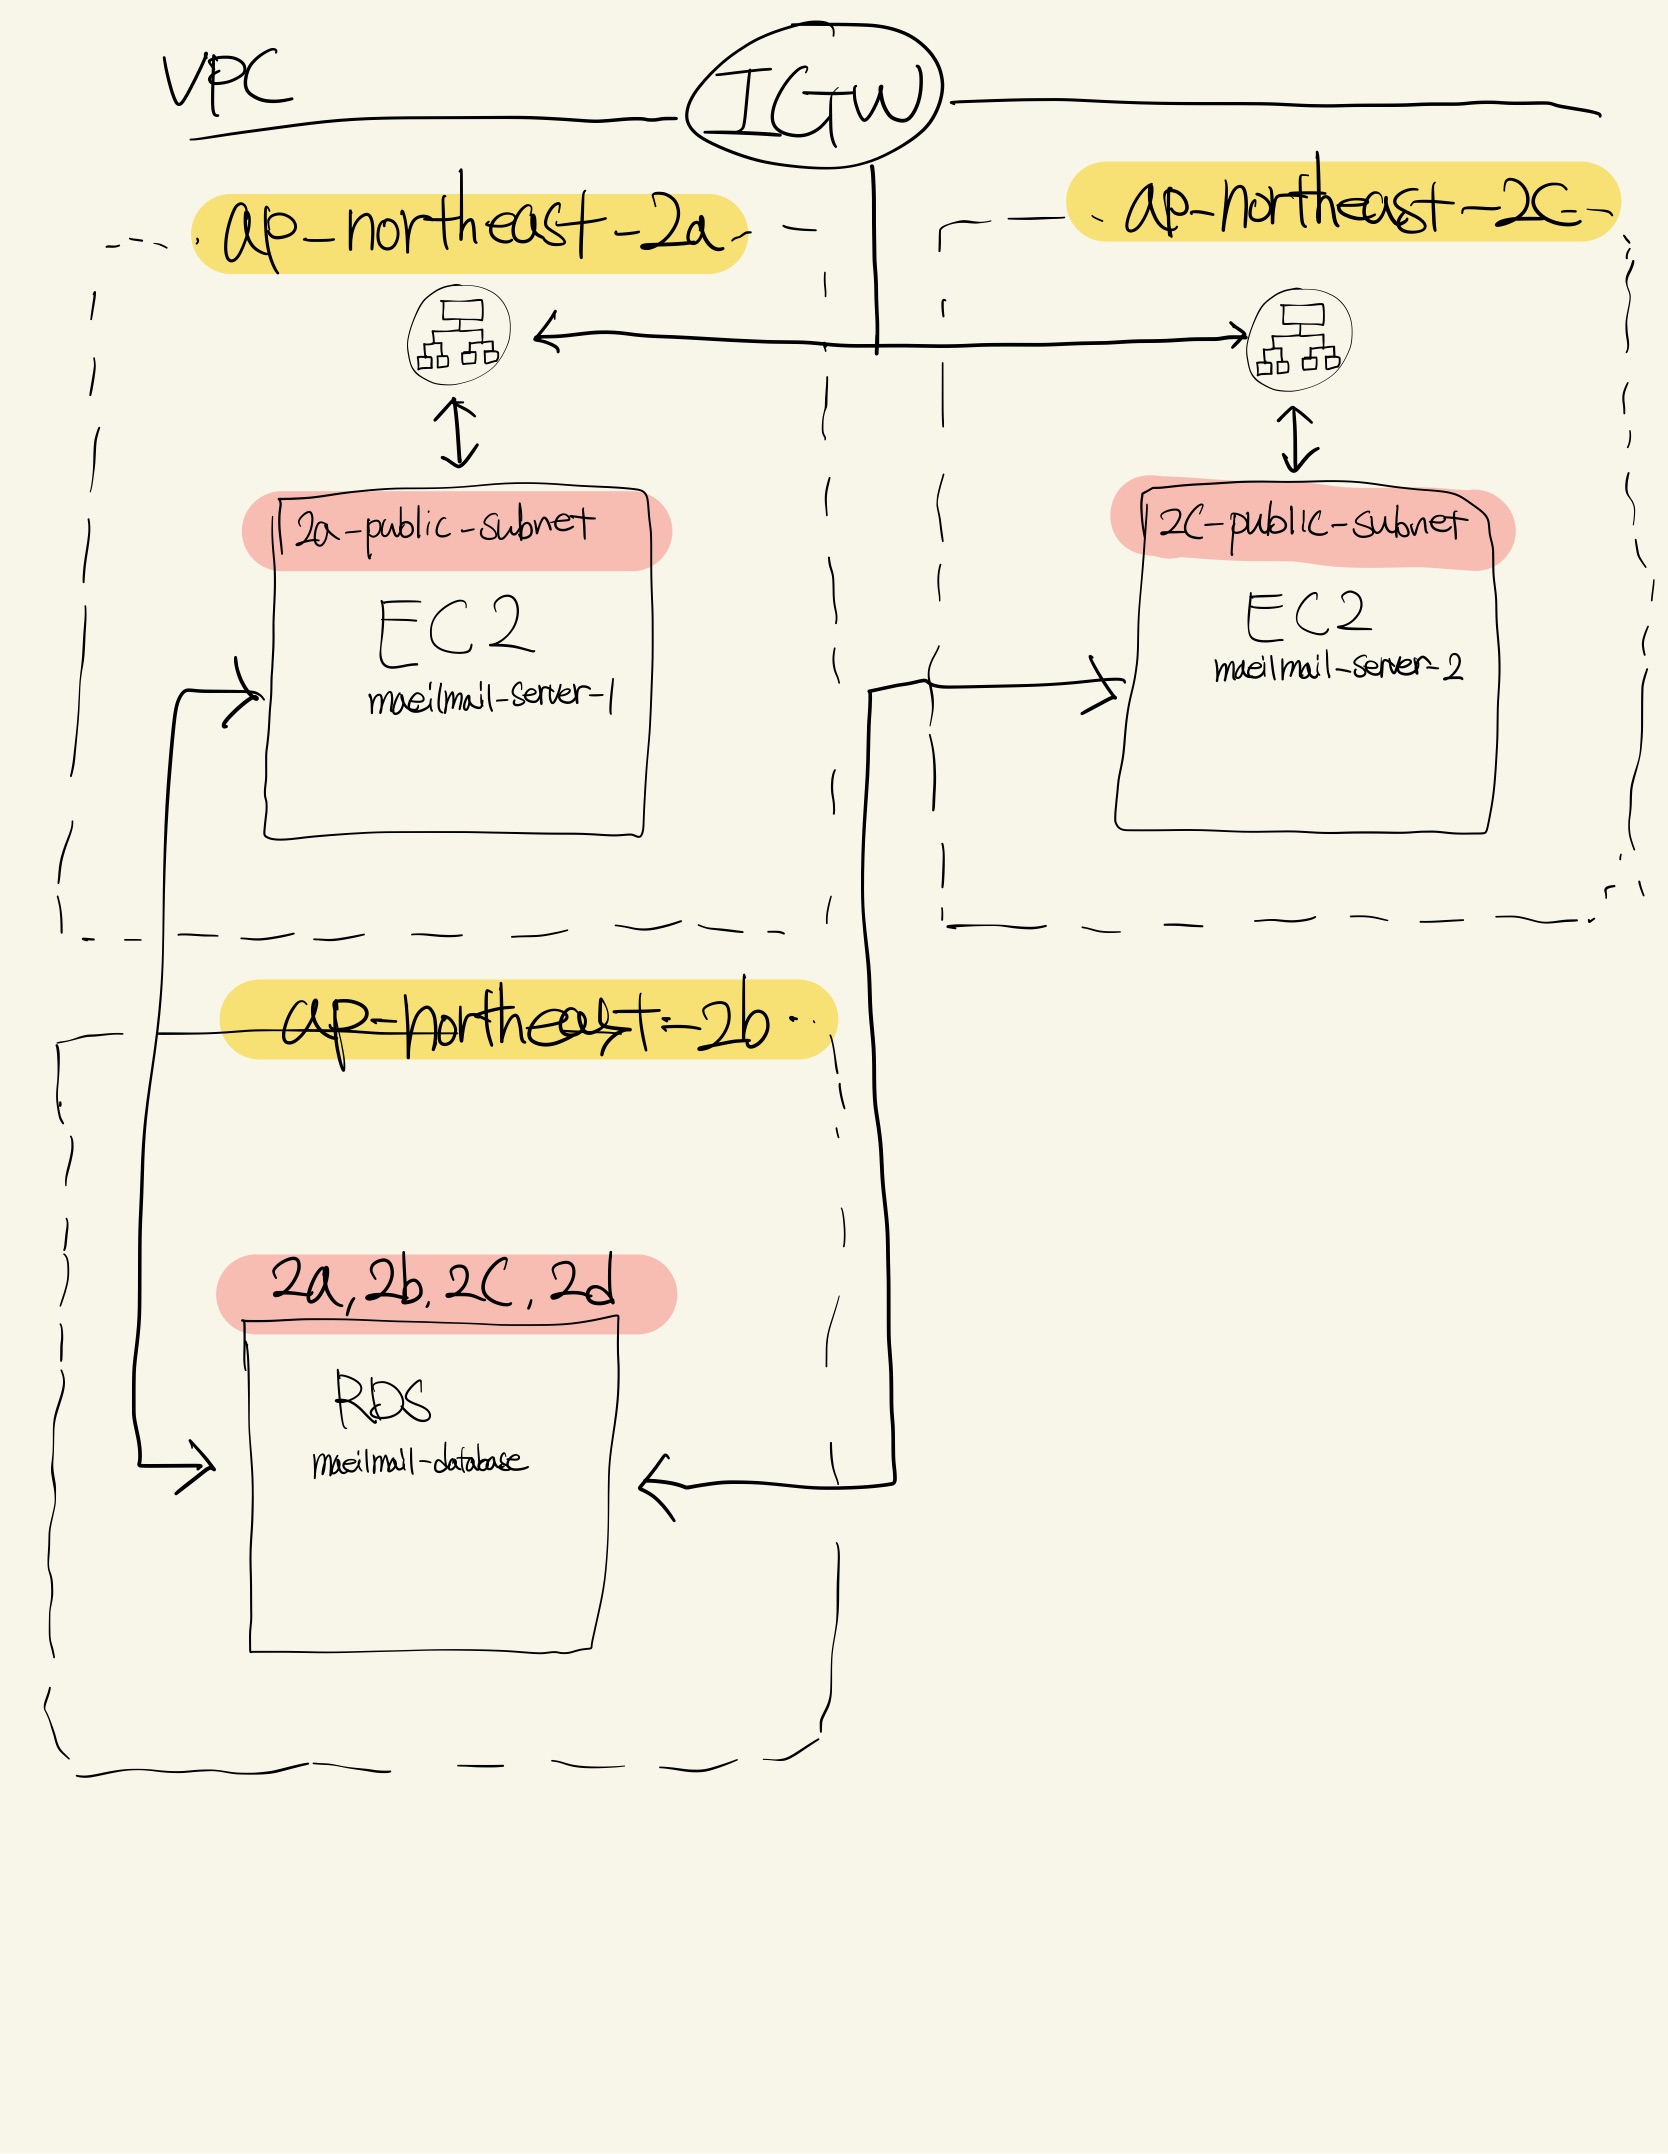 VPC
IGW
ap-northeast-2a
ap-northeast-2c
2a-public-subnet
EC2
maeilmail-server-1
2c-public-subnet
EC2
maeilmail-server-2
ap-northeast-2b
2a, 2b, 2c, 2d
RDS
maeilmail-database